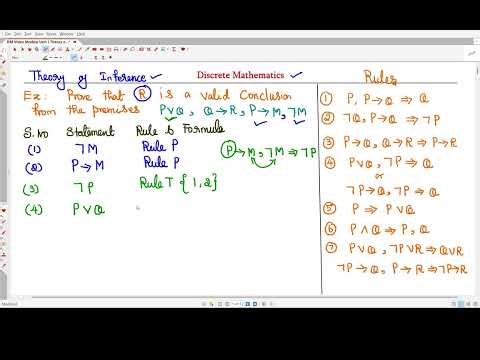 Theory of Inference ✓ Discrete Mathematics ✓
Ex: Prove that R is a valid Conclusion
from the premises P∨Q, Q→R, P→M, ¬M
S.No Statement Rule & Formula
(1) ¬M Rule P
(2) P→M Rule P
(3) ¬P Rule T {1,2}
(4) P∨Q
P→M, ¬M ⇒ ¬P
Rules
① P, P→Q ⇒ Q
② ¬Q, P→Q ⇒ ¬P
③ P→Q, Q→R ⇒ P→R
④ P∨Q, ¬P ⇒ Q
or
¬P→Q, ¬P ⇒ Q
⑤ P ⇒ P∨Q
⑥ P∧Q ⇒ P, Q
⑦ P∨Q, ¬P∨R ⇒ Q∨R
¬P→Q, P→R ⇒ ¬P→R